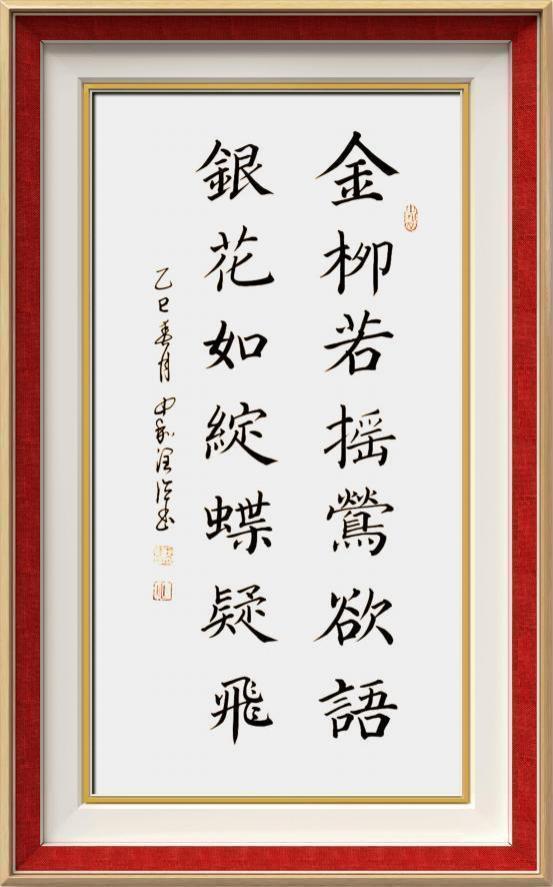 金柳若摇鶯欲語
銀花如綻蝶疑飛
乙巳春月